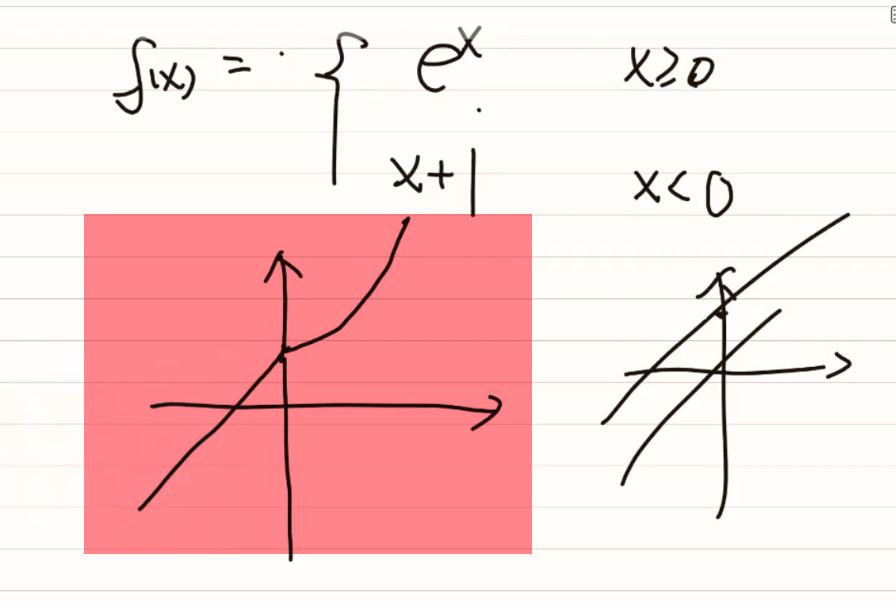 f(x) = { e^x x≥0
x+1 x<0